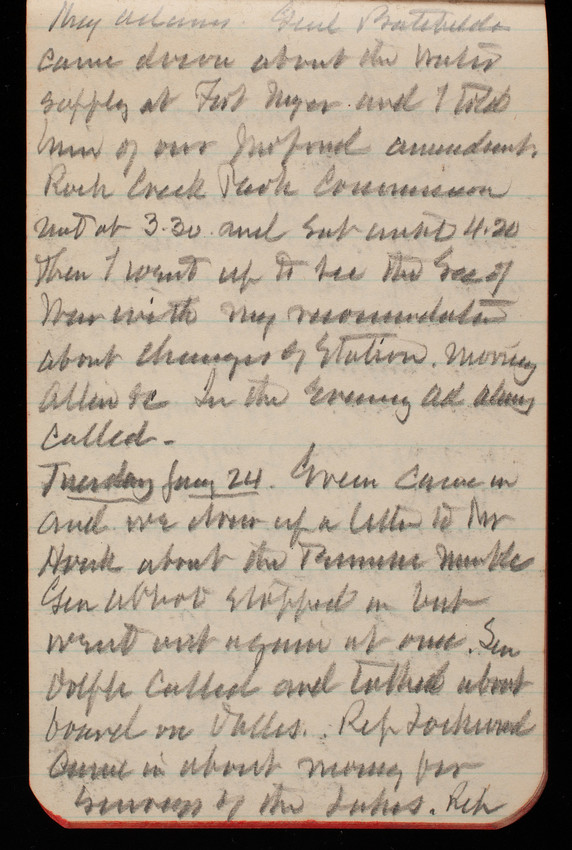 Genl Batchelder
came down about the water
supply at Fort Myer and I told
him of our proposed amendment.
Rock Creek Park Commission
met at 3.30 and sat until 4.20
then I went up to see the Sec of
War with my recommendation
about changes of Station. moving
Allen &c In the Evening
called -
Tuesday Jany 24. Green came in
and we drew up a letter to Mr
about the Tennessee
Gen Abbot stopped in but
went out again at once. Sen
Dolph called and talked about
board on Dalles. Rep Lockwood
came in about money for
Surveys of the Lakes. Rep